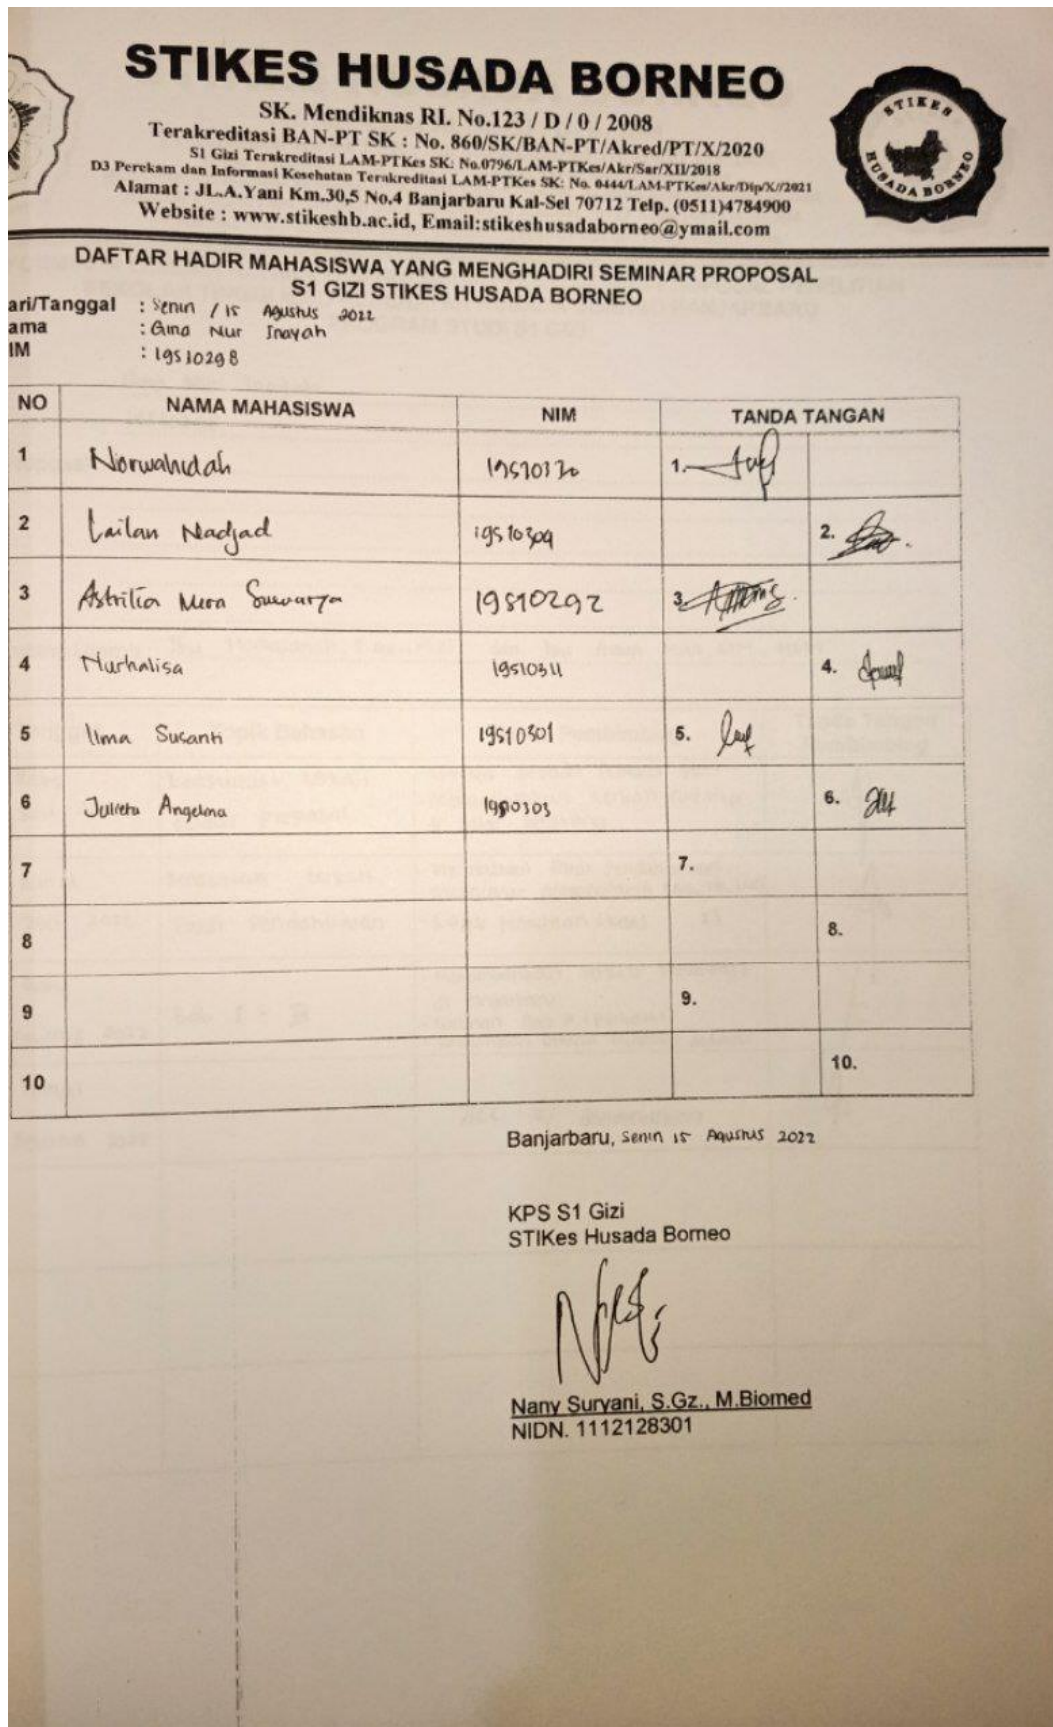 STIKES HUSADA BORNEO
SK. Mendiknas RI. No.123 / D / 0 / 2008
Terakreditasi BAN-PT SK : No. 860/SK/BAN-PT/Akred/PT/X/2020
S1 Gizi Terakreditasi LAM-PTKes SK: No.0796/LAM-PTKes/Akr/Sar/XII/2018
D3 Perekam dan Informasi Kesehatan Terakreditasi LAM-PTKes SK: No. 0444/LAM-PTKes/Akr/Dip/X//2021
Alamat : JL.A.Yani Km.30,5 No.4 Banjarbaru Kal-Sel 70712 Telp. (0511)4784900
Website : www.stikeshb.ac.id, Email:stikeshusadaborneo@ymail.com
STIKES HUSADA BORNEO
DAFTAR HADIR MAHASISWA YANG MENGHADIRI SEMINAR PROPOSAL
S1 GIZI STIKES HUSADA BORNEO
ari/Tanggal : Senin / 15 Agustus 2022
ama : Gina Nur Inayah
IM : 19510298
NO NAMA MAHASISWA NIM TANDA TANGAN
1 Norwahidah 1.
2 Lailan Nadjad 19510309 2.
3 Astrilia Mera 19510292 3.
4 Nurhalisa 19510311 4.
5 lima Susanti 19510301 5.
6 Julieta Angelina 6.
7 7.
8 8.
9 9.
10 10.
Banjarbaru, Senin 15 Agustus 2022
KPS S1 Gizi
STIKes Husada Borneo
Nany Suryani, S.Gz., M.Biomed
NIDN. 1112128301